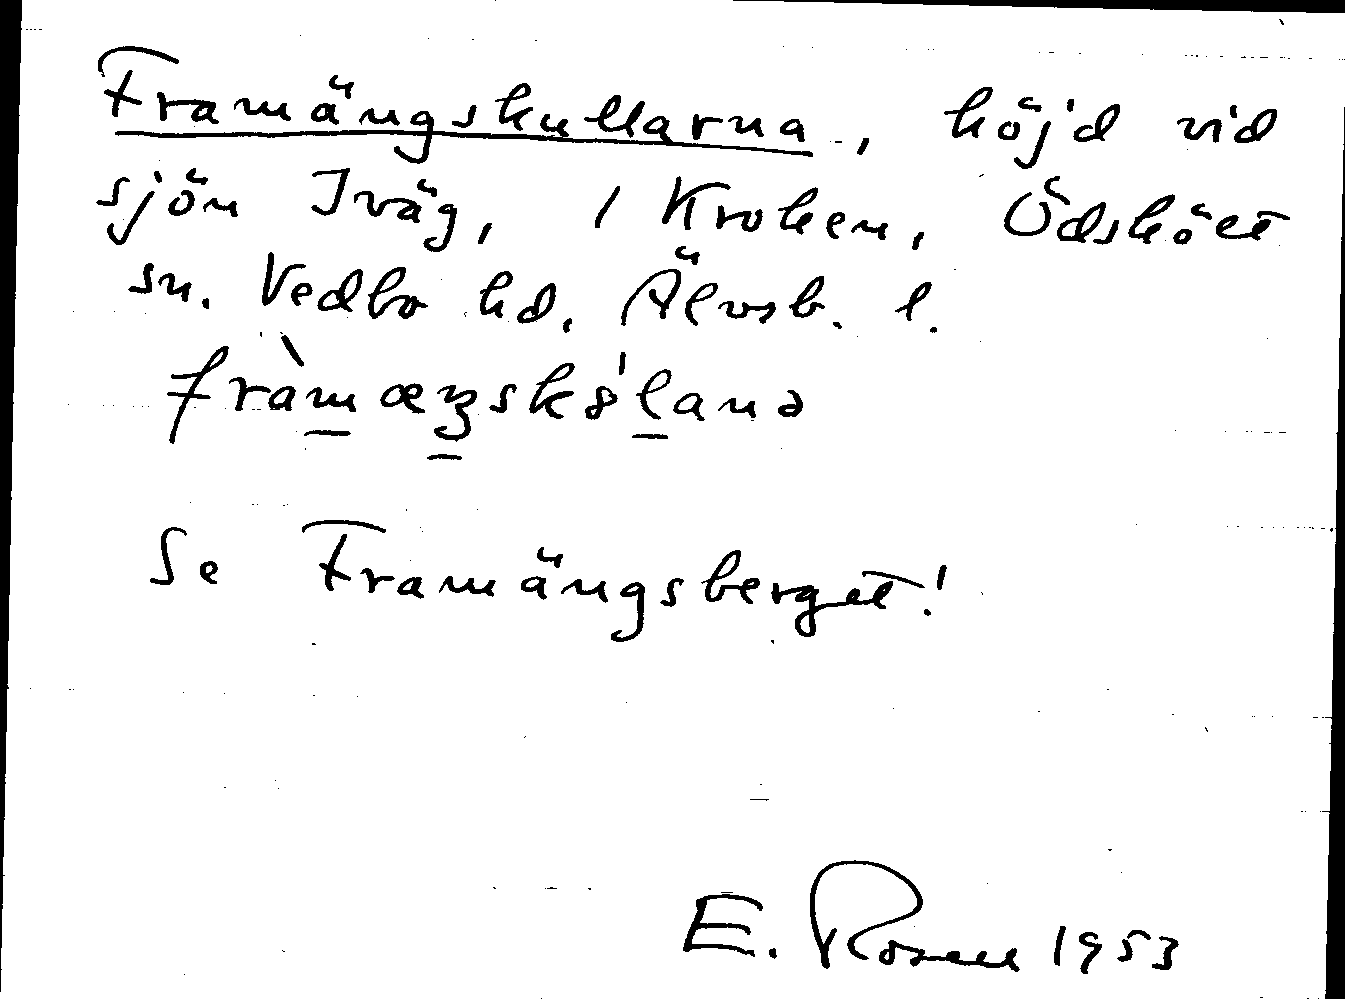 Framängskullarna, höjd vid
sjön Iväg, 1 Kroken, Ödskölt
sn. Vedbo hd. Älvsb. l.
Se Framängsberget!
E. Rosell 1953